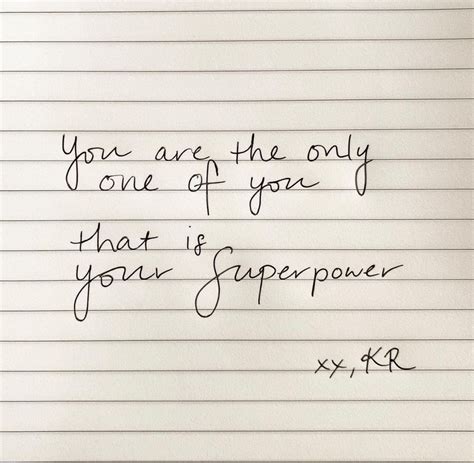 You are the only
one of you
that is
your Superpower
xx, KR